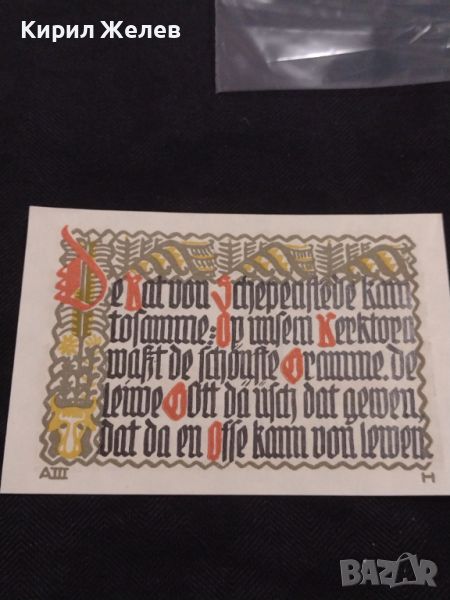 Кирил Желев
De Rat von Schepenstede kam
tosamme: Op unsem Kerktorn
waßt de schönste Gramme. de
leiwe Gott dä üsch dat gewen,
dat da en Osse kann von lewen.
A III H
BAZAR